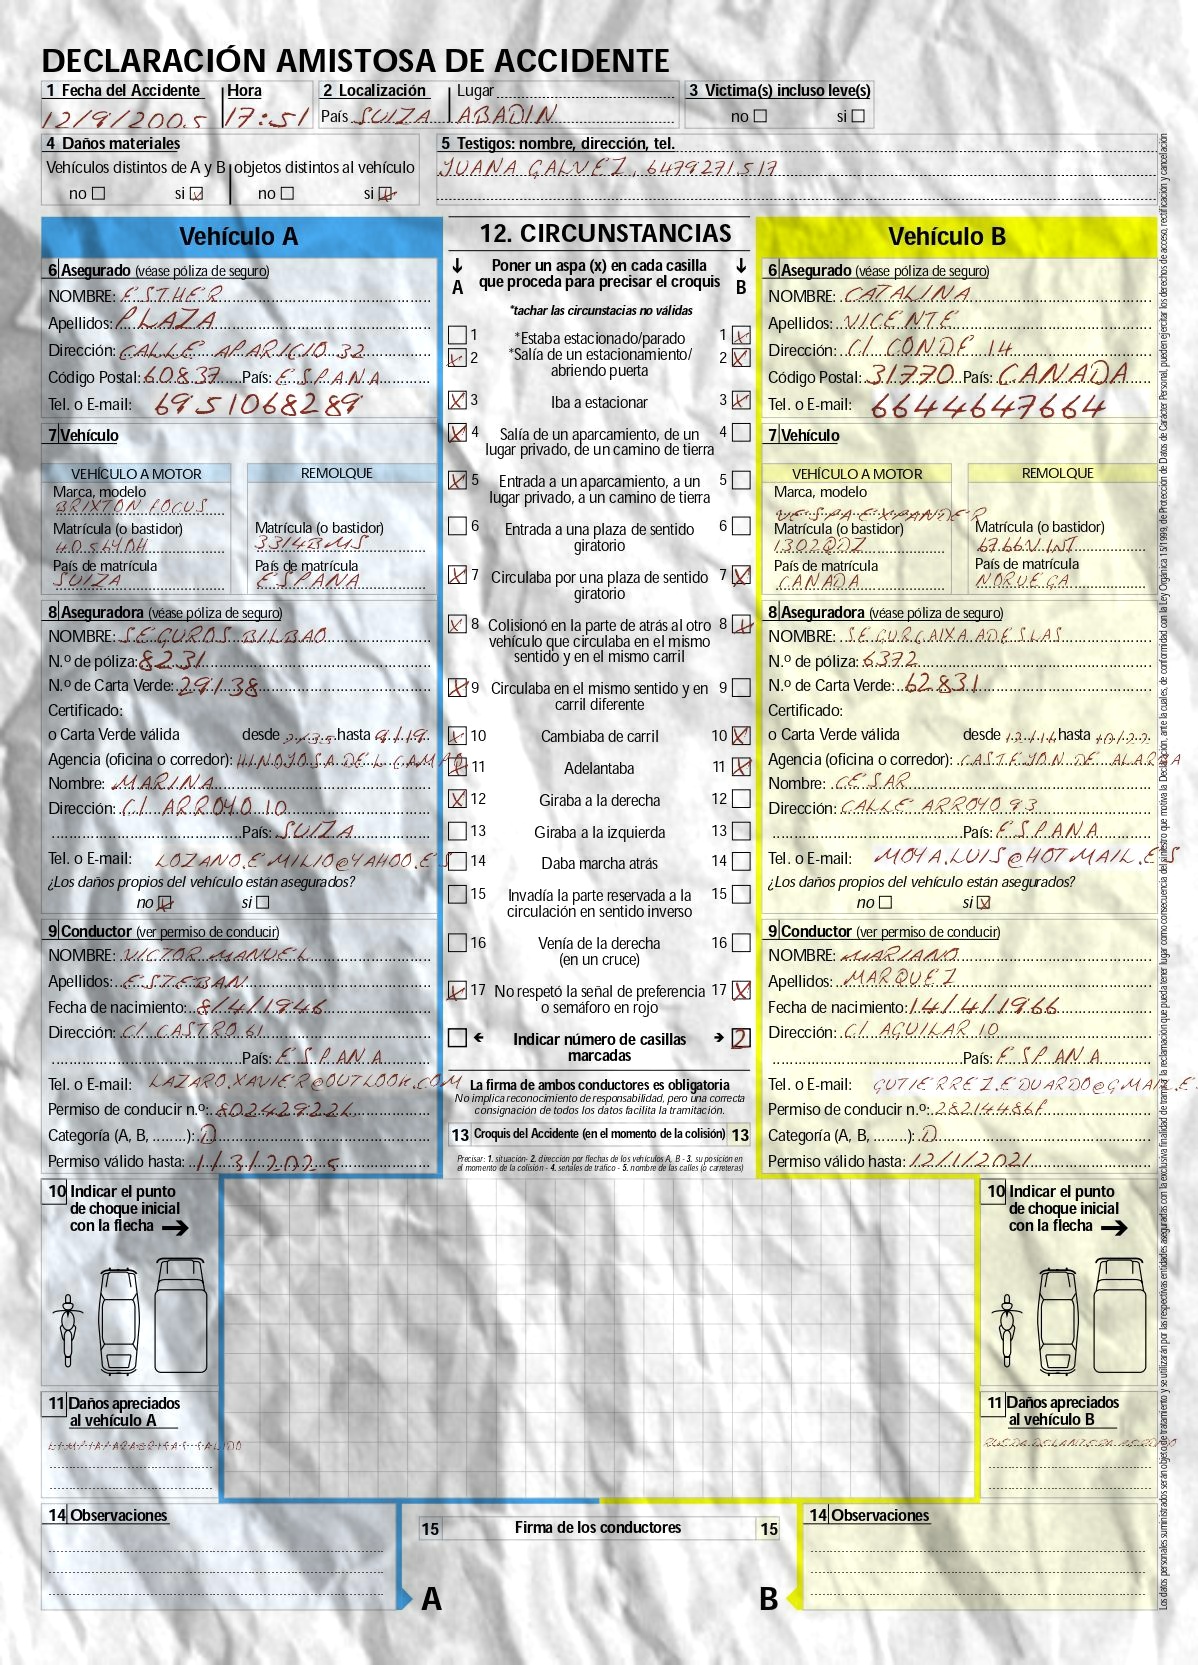 DECLARACIÓN AMISTOSA DE ACCIDENTE
1 Fecha del Accidente
12/9/2005
Hora
17:51
2 Localización
País SUIZA
Lugar
ABADIN
3 Victima(s) incluso leve(s)
no si
4 Daños materiales
Vehículos distintos de A y B objetos distintos al vehículo
no si no si
5 Testigos: nombre, dirección, tel.
JUANA GALVEZ, 6479271517
Vehículo A
6 Asegurado (véase póliza de seguro)
NOMBRE: ESTHER
Apellidos: PLAZA
Dirección: CALLE APARICIO 32
Código Postal: 60837 País: ESPANA
Tel. o E-mail: 6951068289
7 Vehículo
VEHÍCULO A MOTOR
Marca, modelo
BRIXTON FOCUS
Matrícula (o bastidor)
4056YDH
País de matrícula
SUIZA
REMOLQUE
Matrícula (o bastidor)
3314BMS
País de matrícula
ESPANA
8 Aseguradora (véase póliza de seguro)
NOMBRE: SEGUROS BILBAO
N.º de póliza: 8231
N.º de Carta Verde: 29138
Certificado:
o Carta Verde válida desde hasta
Agencia (oficina o corredor): HINOJOSA DEL CAMPO
Nombre: MARINA
Dirección: C/. ARROYO 10
País: SUIZA
Tel. o E-mail: LOZANO.EMILIO@YAHOO.ES
¿Los daños propios del vehículo están asegurados?
no si
9 Conductor (ver permiso de conducir)
NOMBRE: VICTOR MANUEL
Apellidos: ESTEBAN
Fecha de nacimiento: 8/4/1946
Dirección: C/. CASTRO 61
País: ESPANA
Tel. o E-mail: LAZARO.XAVIER@OUTLOOK.COM
Permiso de conducir n.º: 80242922L
Categoría (A, B, ........): D
Permiso válido hasta: 1/3/2025
12. CIRCUNSTANCIAS
A B
Poner un aspa (x) en cada casilla
que proceda para precisar el croquis
*tachar las circunstacias no válidas
1 *Estaba estacionado/parado 1
2 *Salía de un estacionamiento/ 2
abriendo puerta
3 Iba a estacionar 3
4 Salía de un aparcamiento, de un 4
lugar privado, de un camino de tierra
5 Entrada a un aparcamiento, a un 5
lugar privado, a un camino de tierra
6 Entrada a una plaza de sentido 6
giratorio
7 Circulaba por una plaza de sentido 7
giratorio
8 Colisionó en la parte de atrás al otro 8
vehículo que circulaba en el mismo
sentido y en el mismo carril
9 Circulaba en el mismo sentido y en 9
carril diferente
10 Cambiaba de carril 10
11 Adelantaba 11
12 Giraba a la derecha 12
13 Giraba a la izquierda 13
14 Daba marcha atrás 14
15 Invadía la parte reservada a la 15
circulación en sentido inverso
16 Venía de la derecha 16
(en un cruce)
17 No respetó la señal de preferencia 17
o semáforo en rojo
Indicar número de casillas 2
marcadas
La firma de ambos conductores es obligatoria
No implica reconocimiento de responsabilidad, pero una correcta
consignación de todos los datos facilita la tramitación.
13 Croquis del Accidente (en el momento de la colisión) 13
Precisar: 1. situación- 2. dirección por flechas de los vehículos A, B - 3. su posición en
el momento de la colisión - 4. señales de tráfico - 5. nombre de las calles (o carreteras)
Vehículo B
6 Asegurado (véase póliza de seguro)
NOMBRE: CATALINA
Apellidos: VICENTE
Dirección: C/. CONDE 14
Código Postal: 31770 País: CANADA
Tel. o E-mail: 6644647664
7 Vehículo
VEHÍCULO A MOTOR
Marca, modelo
VESPA EXPANDER
Matrícula (o bastidor)
1302QDZ
País de matrícula
CANADA
REMOLQUE
Matrícula (o bastidor)
6766VNT
País de matrícula
NORUEGA
8 Aseguradora (véase póliza de seguro)
NOMBRE: SEGURCAIXA ADESLAS
N.º de póliza: 6372
N.º de Carta Verde: 62831
Certificado:
o Carta Verde válida desde 12.1.14 hasta 10.12.22
Agencia (oficina o corredor): CASTEJON DE ALARBA
Nombre: CESAR
Dirección: CALLE ARROYO 93
País: ESPANA
Tel. o E-mail: MOYA.LUIS@HOTMAIL.ES
¿Los daños propios del vehículo están asegurados?
no si
9 Conductor (ver permiso de conducir)
NOMBRE: MARIANO
Apellidos: MARQUEZ
Fecha de nacimiento: 14/4/1966
Dirección: C/. AGUILAR 10
País: ESPANA
Tel. o E-mail: GUTIERREZ.EDUARDO@GMAIL.E
Permiso de conducir n.º: 28214486F
Categoría (A, B, ........): D
Permiso válido hasta: 12/1/2021
10 Indicar el punto
de choque inicial
con la flecha
11 Daños apreciados
al vehículo A
LIMPIAPARABRISAS SALIDO
10 Indicar el punto
de choque inicial
con la flecha
11 Daños apreciados
al vehículo B
RUEDA DELANTERA
14 Observaciones
15 Firma de los conductores 15
A B
14 Observaciones